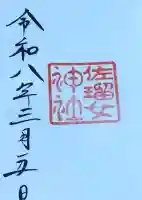 令和八年三月五日
佐瑠女
神社